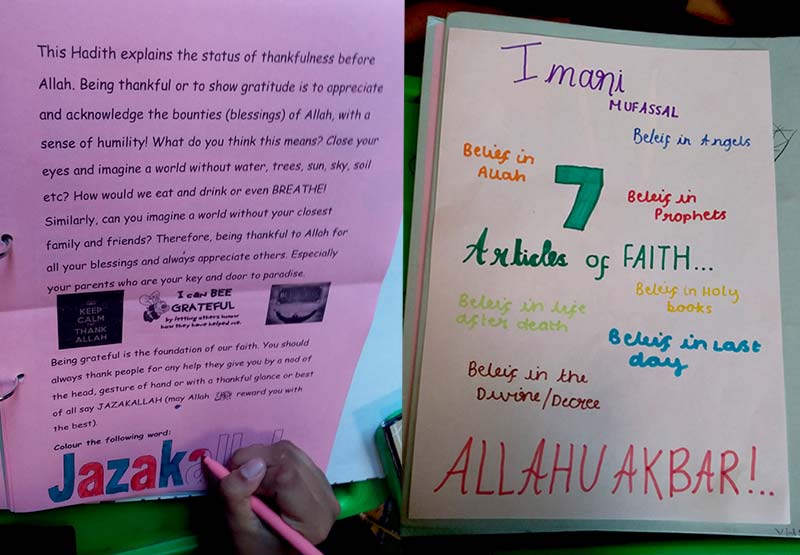 This Hadith explains the status of thankfulness before
Allah. Being thankful or to show gratitude is to appreciate
and acknowledge the bounties (blessings) of Allah, with a
sense of humility! What do you think this means? Close your
eyes and imagine a world without water, trees, sun, sky, soil
etc? How would we eat and drink or even BREATHE!
Similarly, can you imagine a world without your closest
family and friends? Therefore, being thankful to Allah for
all your blessings and always appreciate others. Especially
your parents who are your key and door to paradise.
KEEP
CALM
AND
THANK
ALLAH
I can BEE
GRATEFUL
by letting others know
how they have helped me.
Being grateful is the foundation of our faith. You should
always thank people for any help they give you by a nod of
the head, gesture of hand or with a thankful glance or best
of all say JAZAKALLAH (may Allah reward you with
the best).
Colour the following word:
Jazakallah!
Imani
MUFASSAL
Beleif in Angels
Belief in
Allah
7
Beleif in
Prophets
Articles of FAITH...
Beleif in Holy
books
Beleif in life
after death
Beleif in Last
day
Beleif in the
Divine/Decree
ALLAHU AKBAR!..